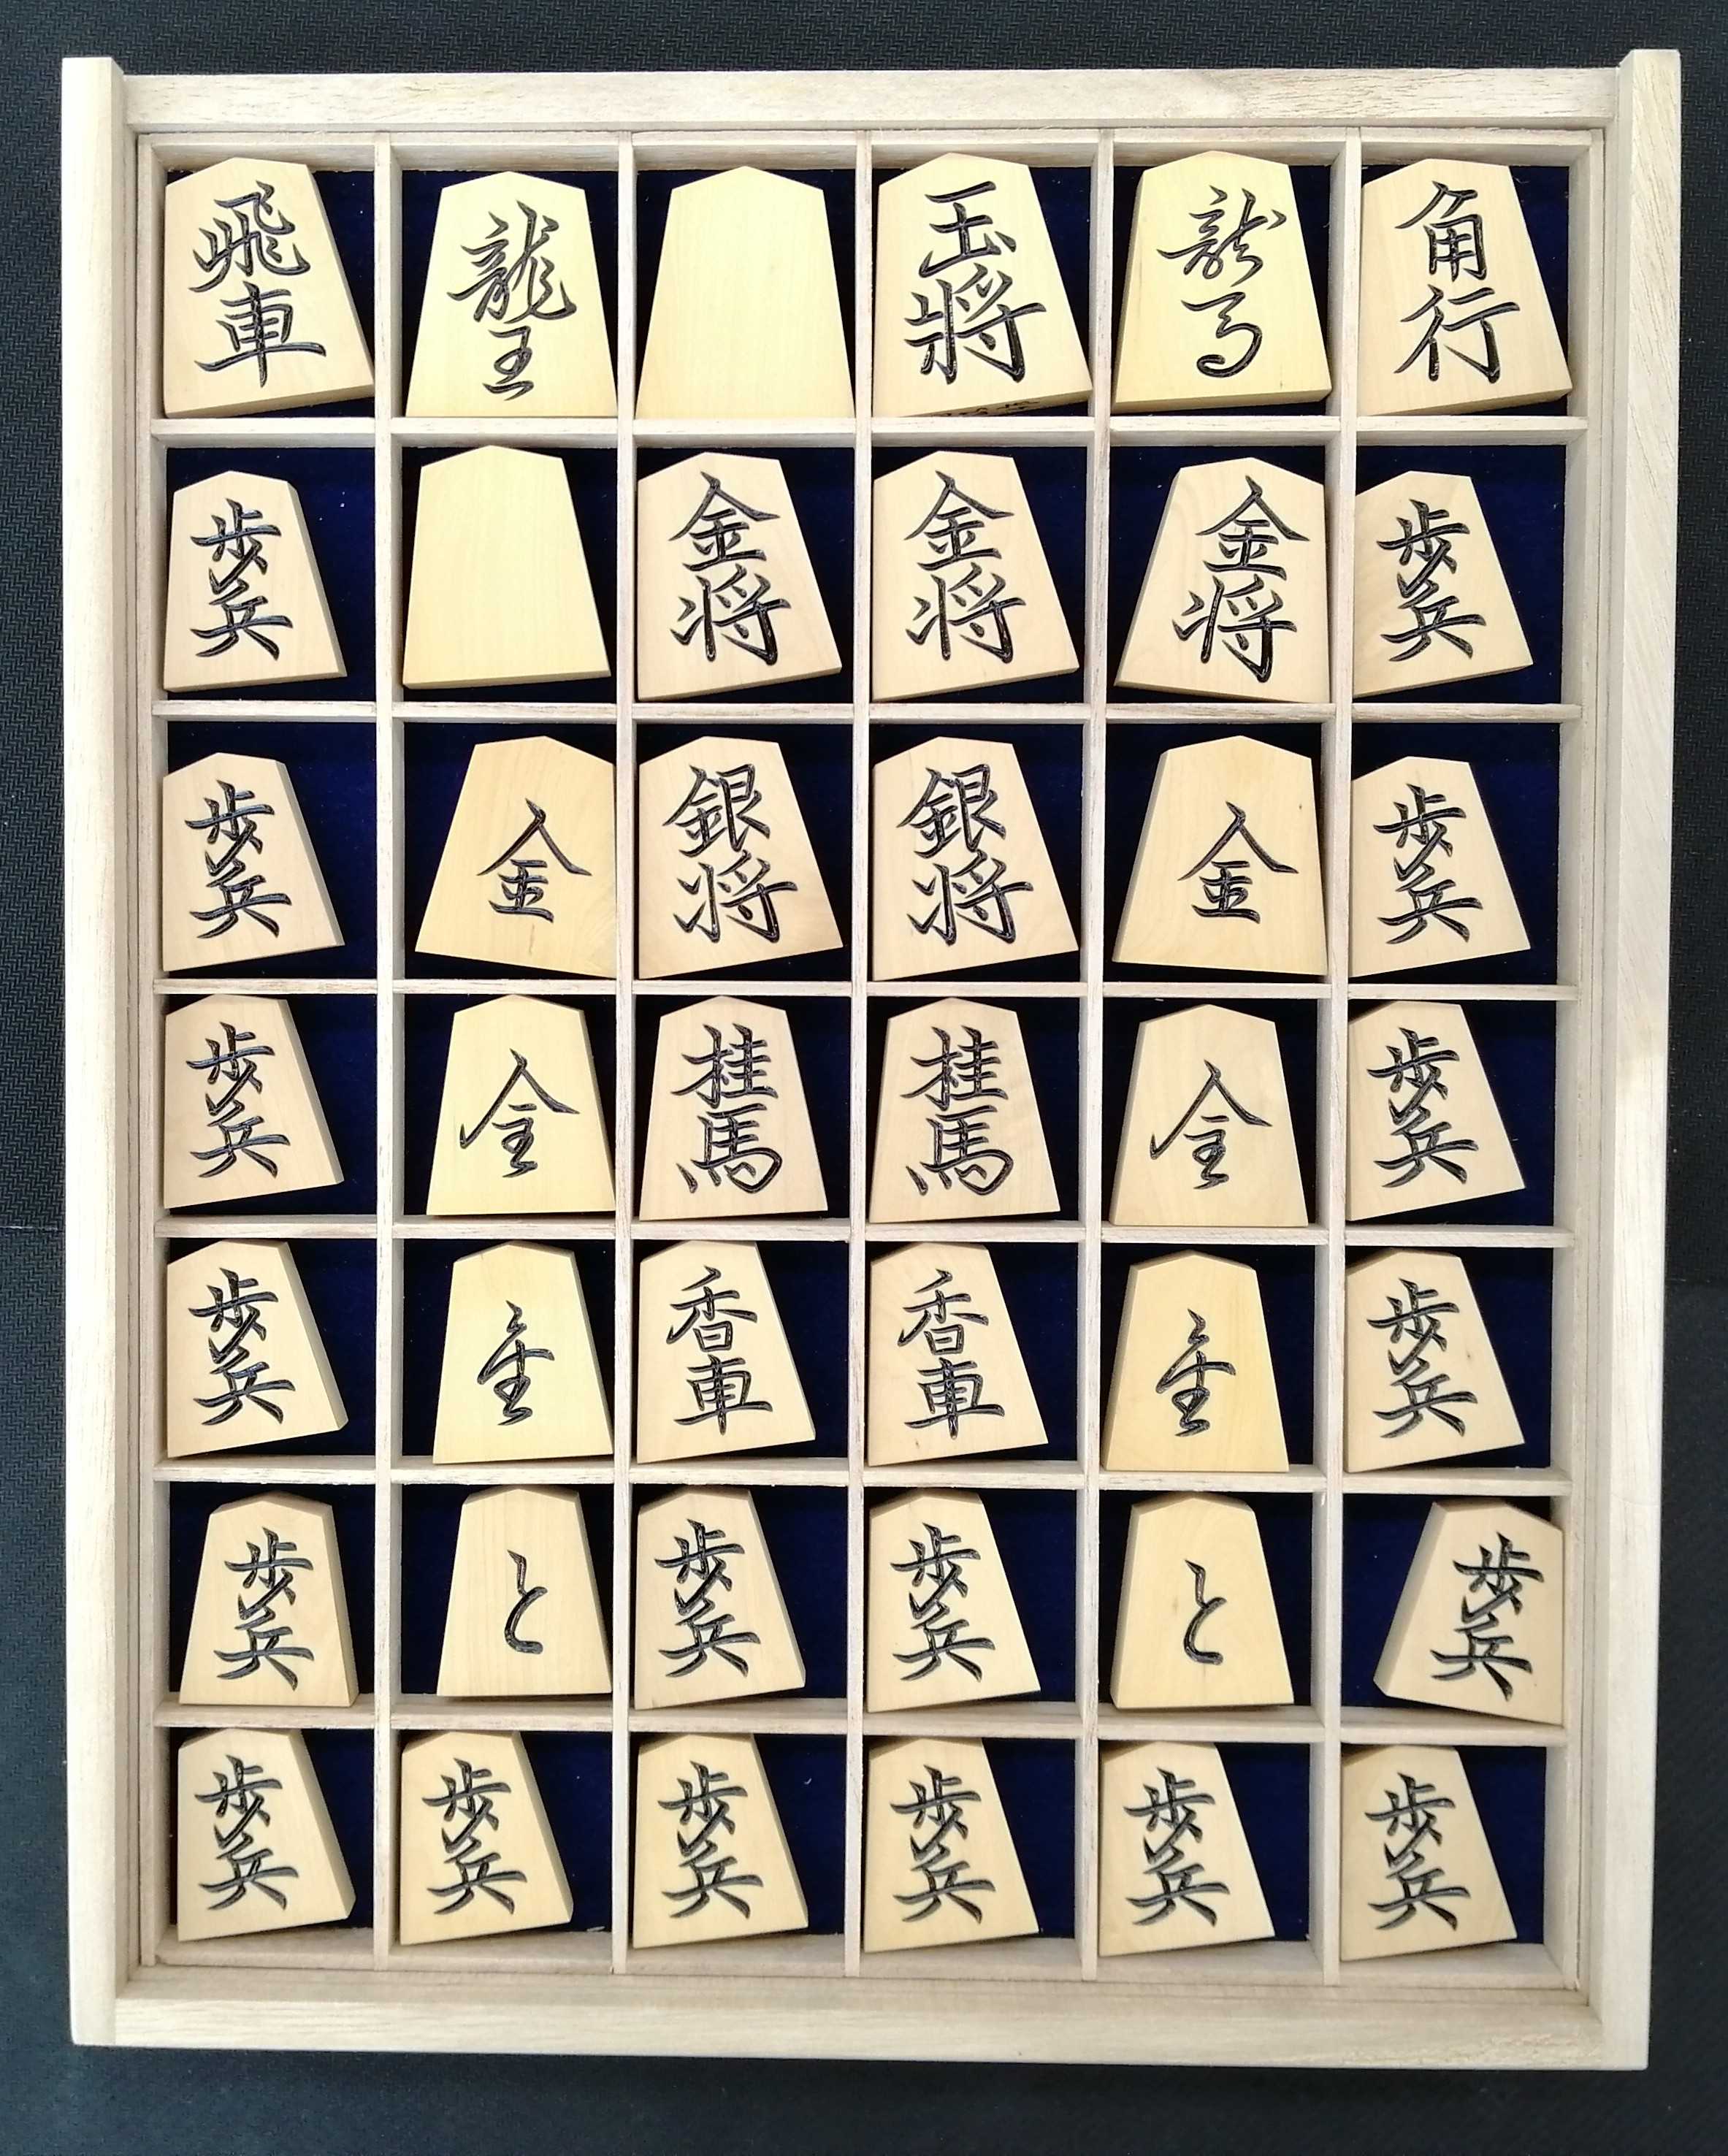 飛車 龍王 玉將 龍馬 角行
歩兵 金将 金将 金将 歩兵
歩兵 金 銀将 銀将 金 歩兵
歩兵 金 桂馬 桂馬 金 歩兵
歩兵 金 香車 香車 金 歩兵
歩兵 と 歩兵 歩兵 と 歩兵
歩兵 歩兵 歩兵 歩兵 歩兵 歩兵